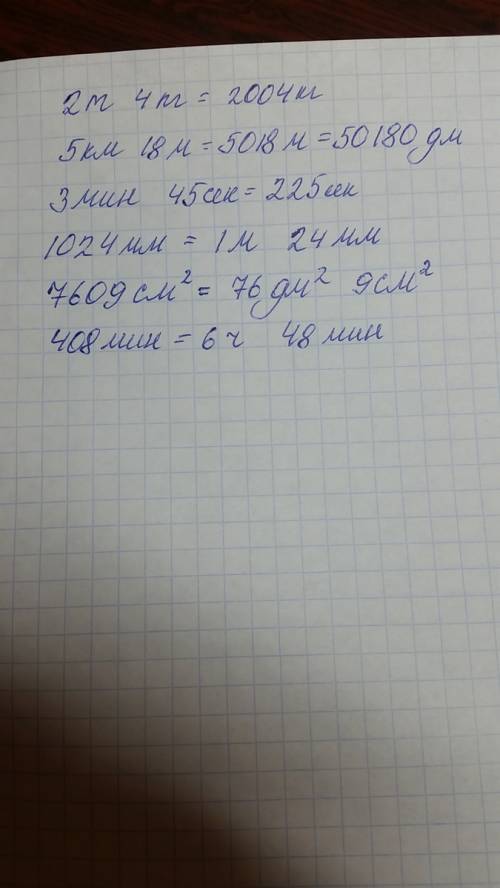 2т 4кг = 2004кг
5км 18м = 5018м = 50180дм
3мин 45сек = 225сек
1024мм = 1м 24мм
7609см² = 76дм² 9см²
408мин = 6ч 48мин